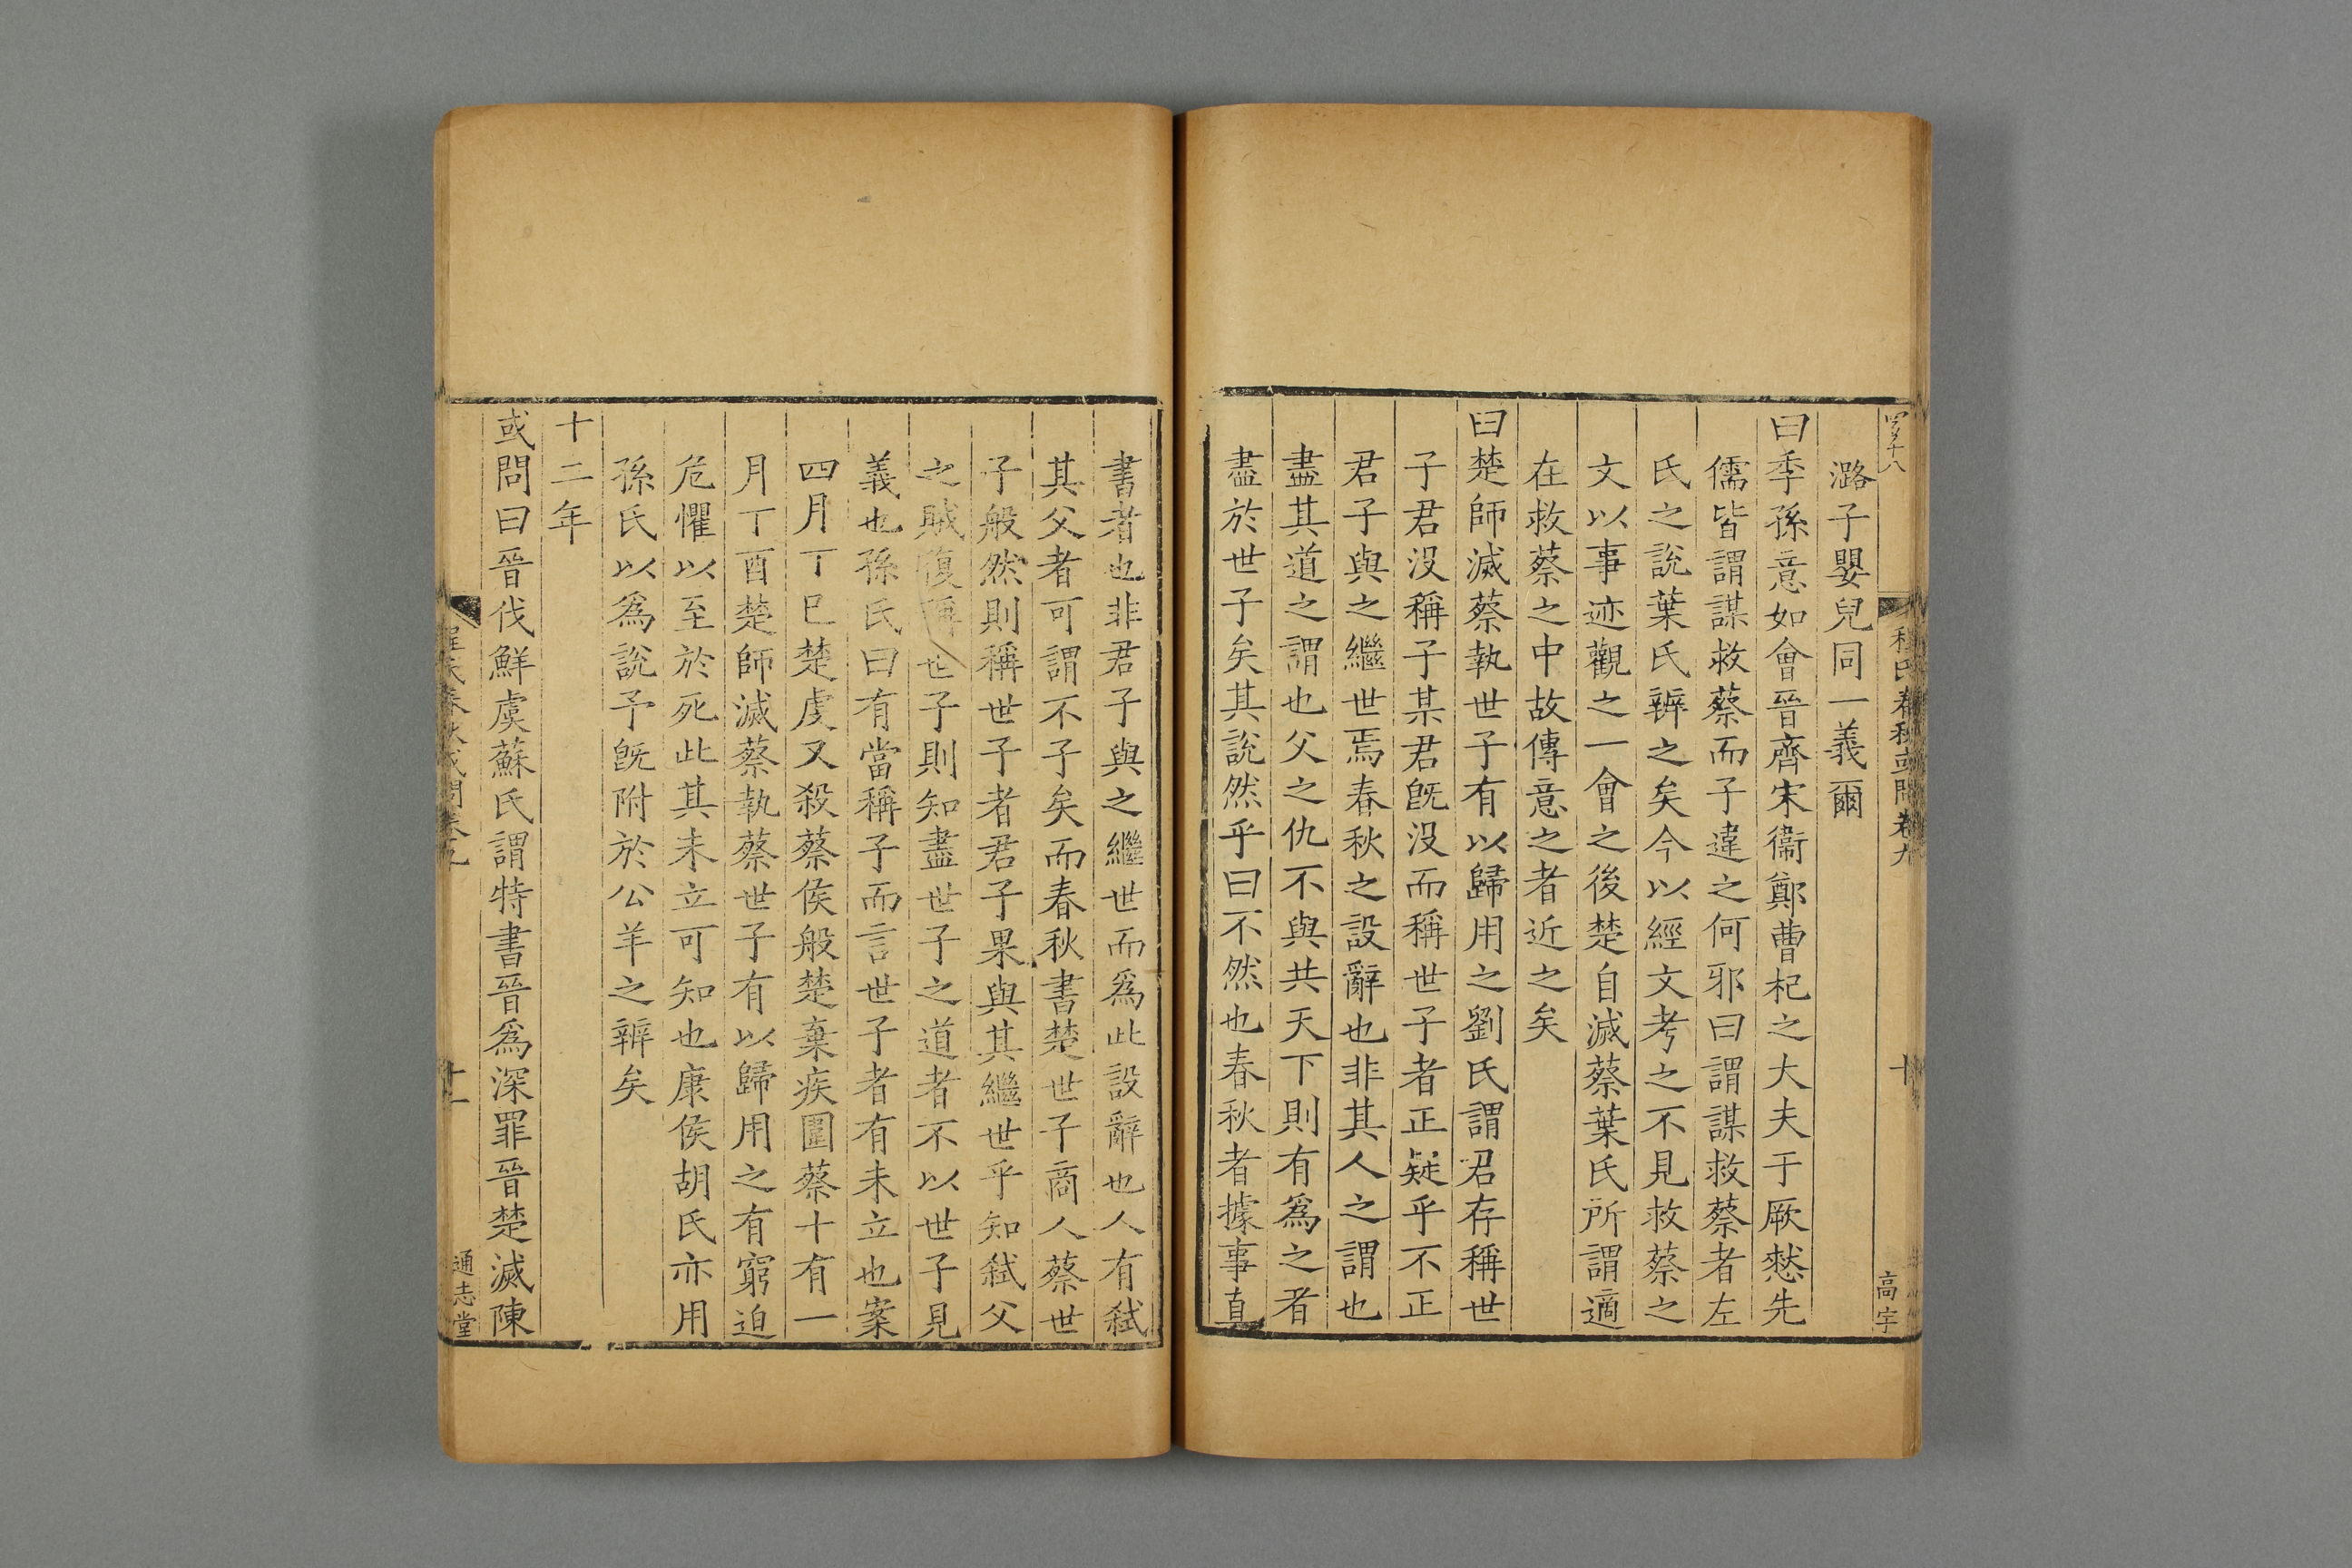 潞子嬰兒同一義爾
曰季孫意如會晉齊宋衞鄭曹杞之大夫于厥憖先
儒皆謂謀救蔡而子違之何邪曰謂謀救蔡者左
氏之說葉氏辨之矣今以經文考之不見救蔡之
文以事迹觀之一會之後楚自滅蔡葉氏所謂適
在救蔡之中故傳意之者近之矣
曰楚師滅蔡執世子有以歸用之劉氏謂君存稱世
子君沒稱子某君旣沒而稱世子者正疑乎不正
君子與之繼世焉春秋之設辭也非其人之謂也
盡其道之謂也父之仇不與共天下則有爲之者
盡於世子矣其說然乎曰不然也春秋者據事直
書者也非君子與之繼世而爲此設辭也人有弒
其父者可謂不子矣而春秋書楚世子商人蔡世
子般然則稱世子者君子果與其繼世乎知弒父
之賊復稱世子則知盡世子之道者不以世子見
義也孫氏曰有當稱子而言世子者有未立也案
四月丁巳楚虔又殺蔡侯般楚棄疾圍蔡十有一
月丁酉楚師滅蔡執蔡世子有以歸用之有窮迫
危懼以至於死此其未立可知也康侯胡氏亦用
孫氏以爲說予旣附於公羊之辨矣
十二年
或問曰晉伐鮮虞蘇氏謂特書晉爲深罪晉楚滅陳
十一
通志堂